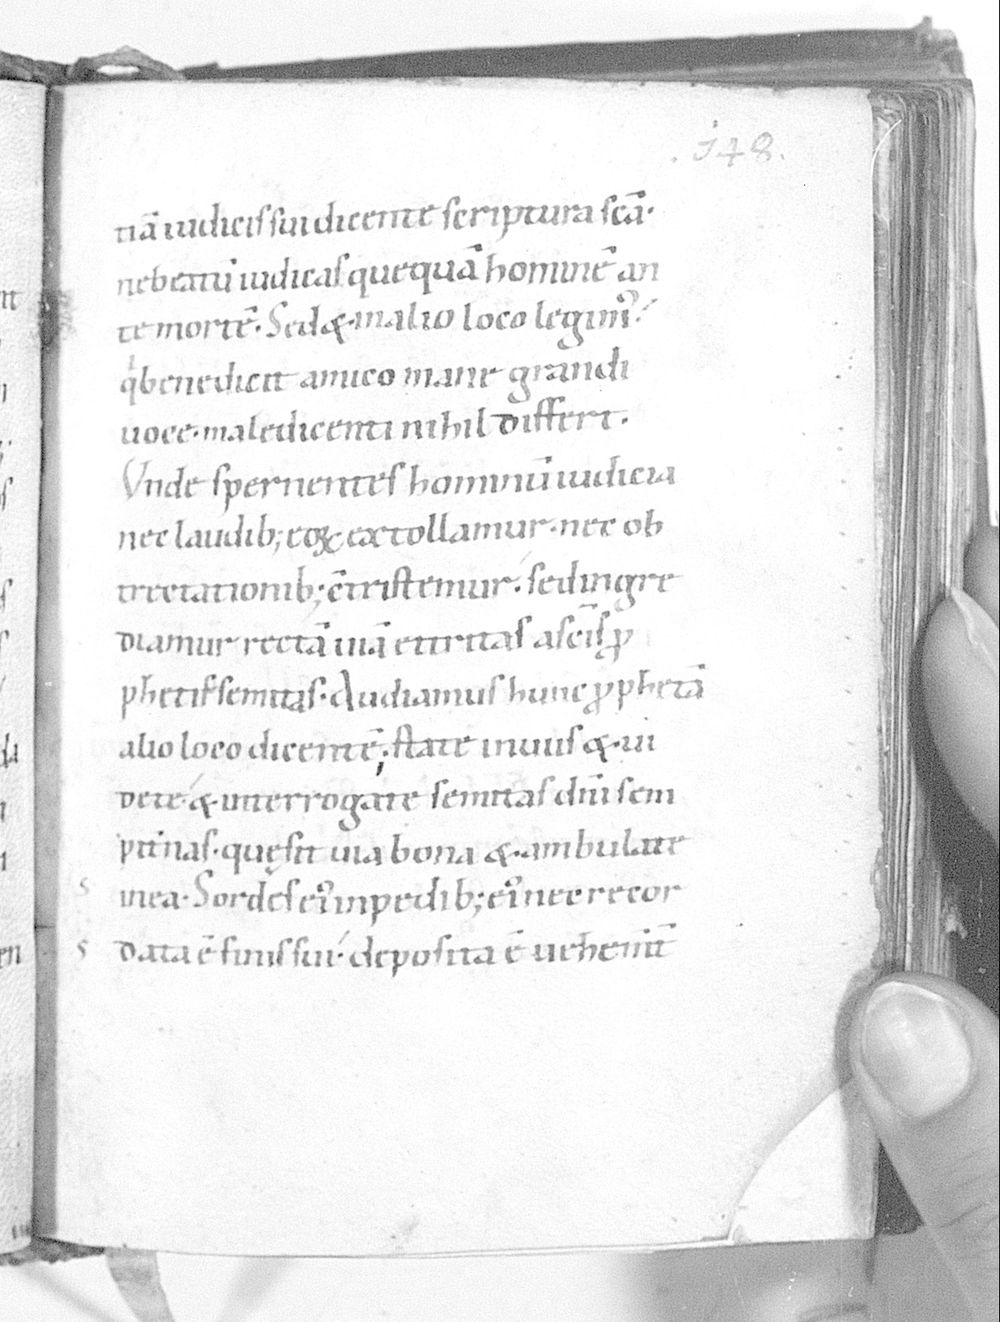 .148.
tiā iudicis sui dicente scriptura scā·
ne beatū iudicas quequā hominē an
te mortē· Sed &·in alio loco legim᷒·
q̇ benedicit amico mane grandi
uoce·maledicenti nihil differt·
Vnde spernentes hominū iudicia
nec laudib; eoꝝ extollamur·nec ob
trectationib; c̄tristemur· sed ingre
diamur rectā uiā et tritas a sc̄is ꝓ
phetis semitas· Audiamus hunc ꝓphetā
alio loco dicentē; state in uiis &·ui
dete·&·interrogate semitas dn̄i sem
pit̄nas·quę sit uia bona &·ambulate
in ea· Sordes ei᷒ in pedib; ei᷒ nec recor
data ē finis sui· deposita ē uehem̄t̄